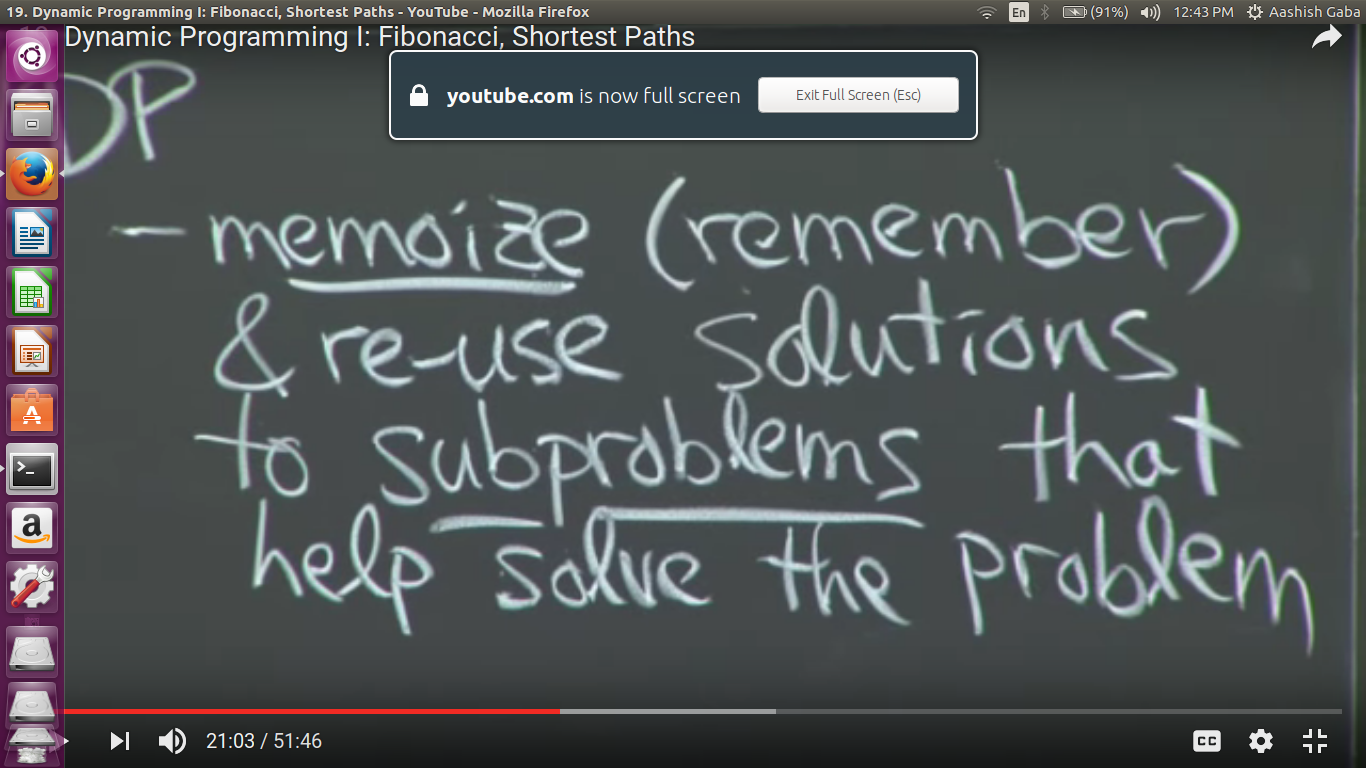 19. Dynamic Programming I: Fibonacci, Shortest Paths - YouTube - Mozilla Firefox
En (91%) 12:43 PM Aashish Gaba
Dynamic Programming I: Fibonacci, Shortest Paths
youtube.com is now full screen
Exit Full Screen (Esc)
DP
- memoize (remember)
& re-use solutions
to subproblems that
help solve the problem
21:03 / 51:46
CC